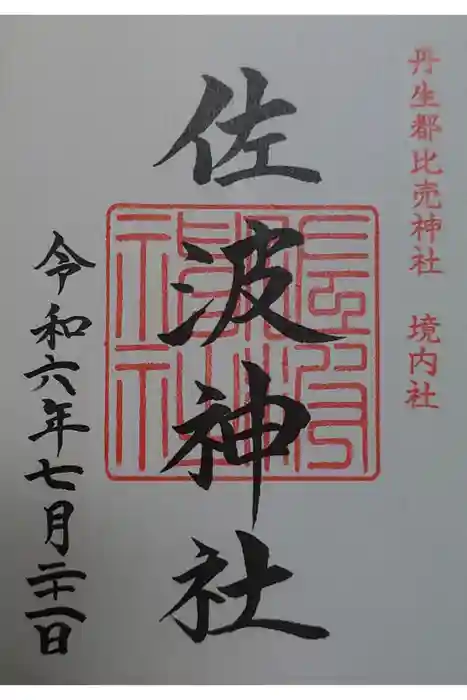 丹生都比売神社 境内社
佐波神社
令和六年七月二十一日